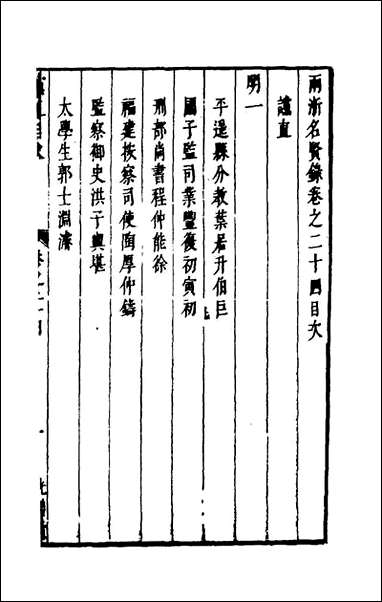 兩浙名賢錄卷之二十四目次
讜直
明一
平遥縣分教葉居升伯巨
國子監司業豐復初寅初
刑部尚書程仲能徐
福建按察司使陶厚仲鑄
監察御史洪子輿堪
太學生郭士淵濬